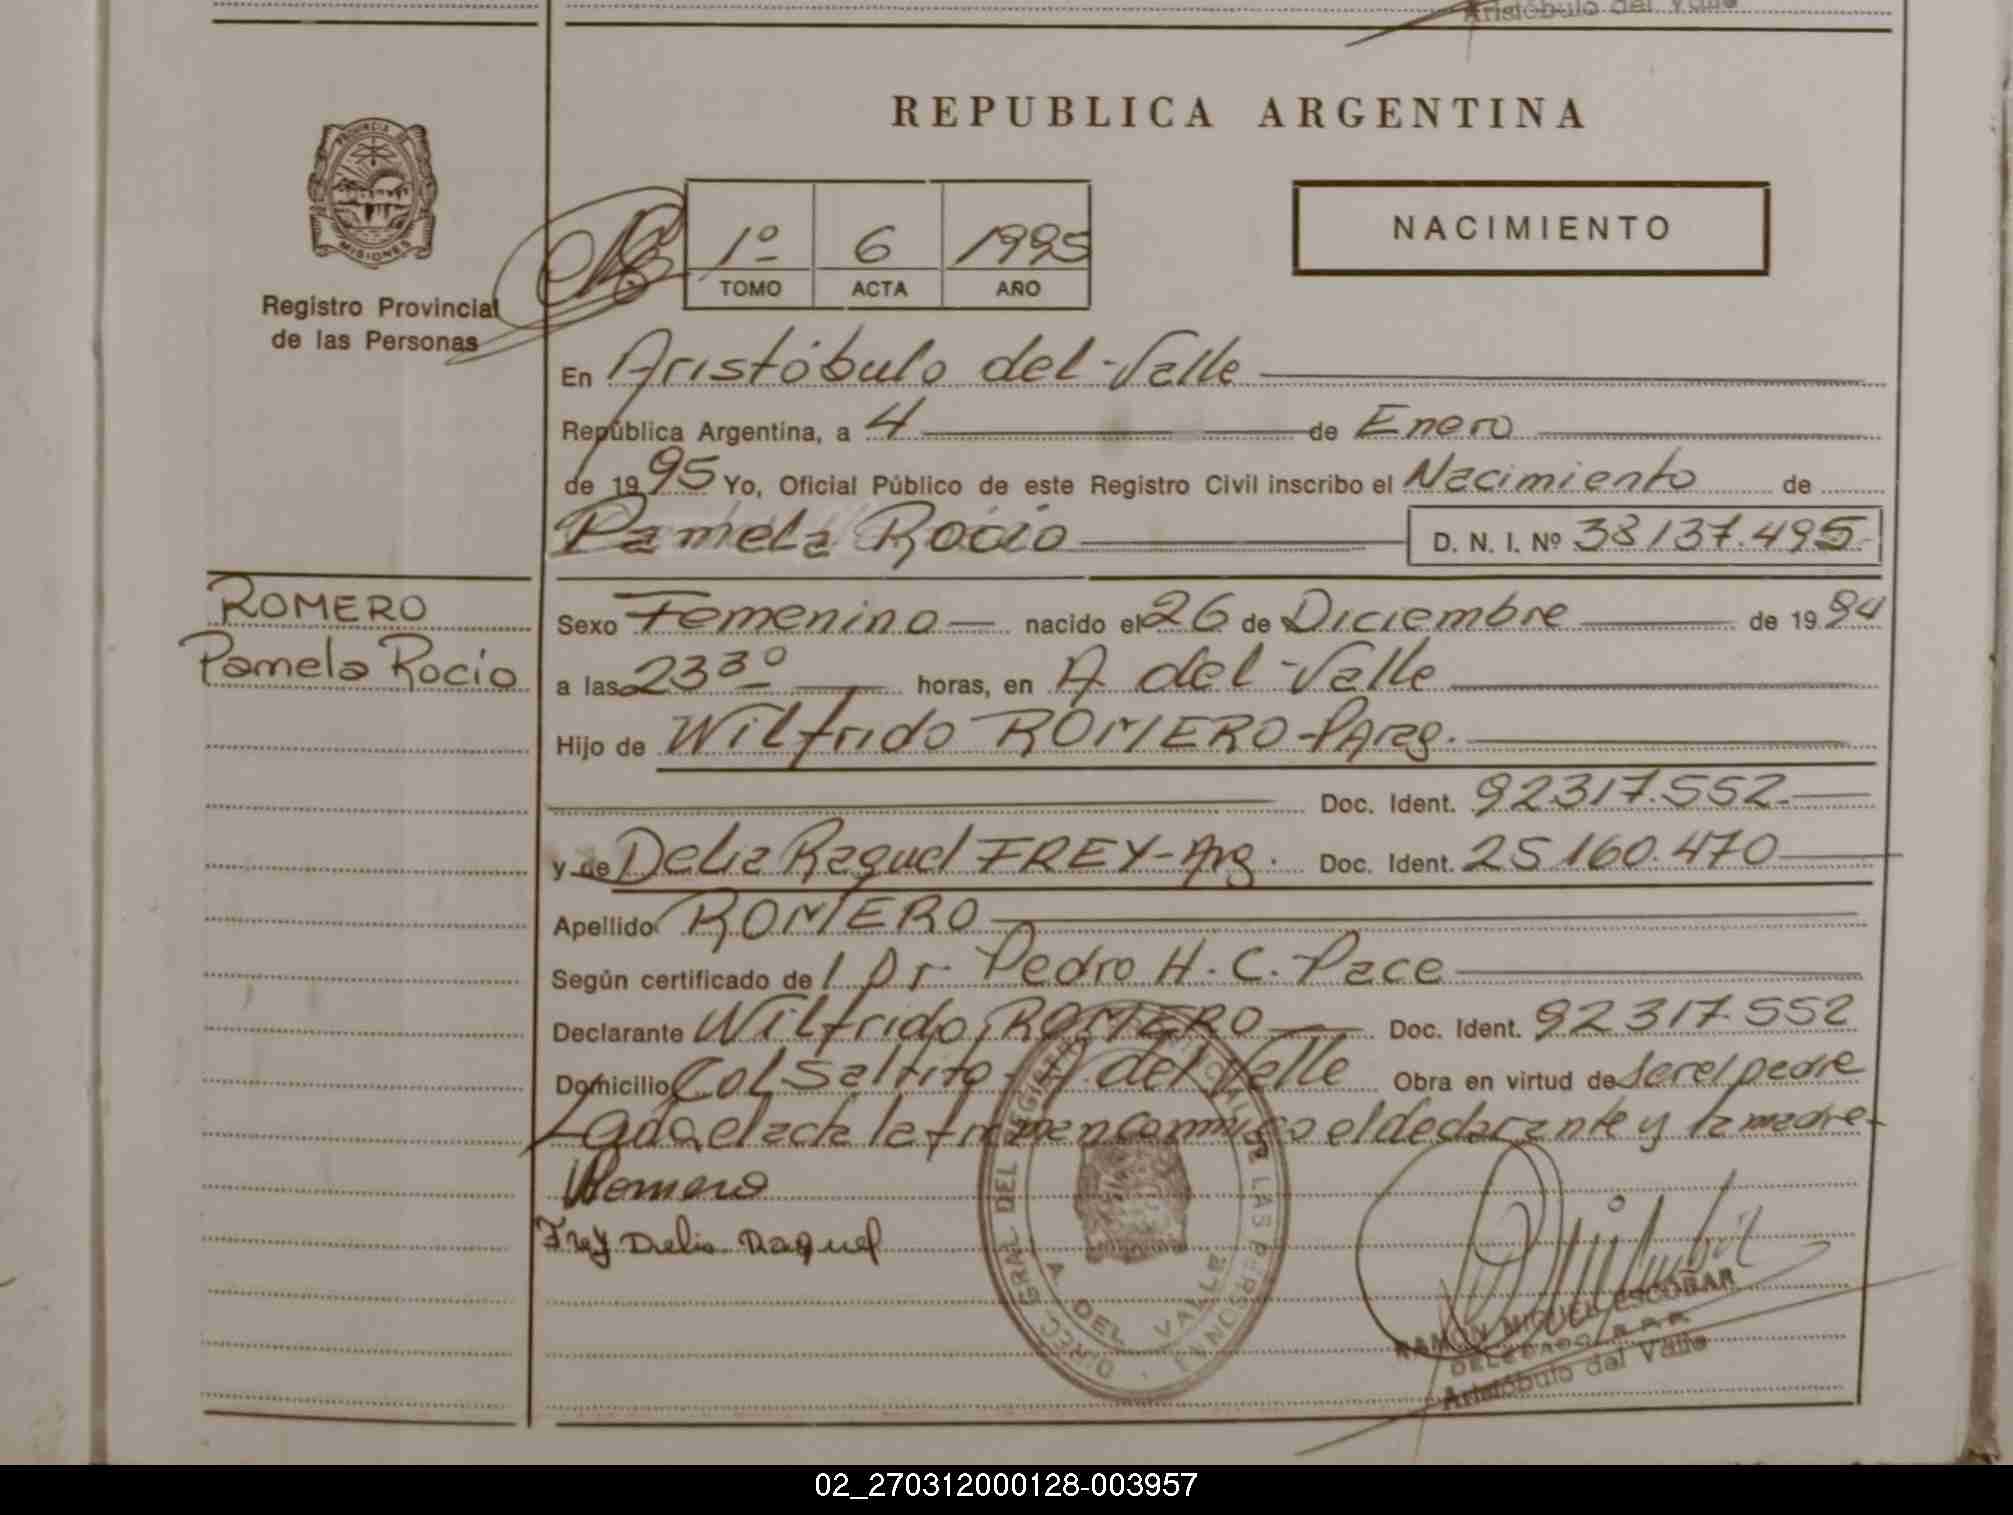 Aristóbulo del Valle
REPUBLICA ARGENTINA
PROVINCIA DE
MISIONES
Registro Provincial
de las Personas
1º 6 1995
TOMO ACTA AÑO
NACIMIENTO
En Aristóbulo del Valle
República Argentina, a 4 de Enero
de 1995 Yo, Oficial Público de este Registro Civil inscribo el Nacimiento de
Pamela Rocio D. N. I. Nº 38137.495
ROMERO
Pamela Rocio
Sexo Femenino nacido el 26 de Diciembre de 1994
a las 23 30 horas, en A del Valle
Hijo de Wilfrido ROMERO-PArg.
Doc. Ident. 92317.552
y de Delia Raquel FREY-Arg. Doc. Ident. 25160.470
Apellido ROMERO
Según certificado de l Dr. Pedro H. C. Pace
Declarante Wilfrido ROMERO Doc. Ident. 92317.552
Domicilio Col Saltito-A. del Valle Obra en virtud de ser el padre
Leida el acta la firman conmigo el declarante y la madre-
WRomero
Frey Delia Raquel
DIREC. GRAL DEL REGISTRO DE LAS PERSONAS
A. DEL VALLE
RAMON MIGUEL ESCOBAR
DELEGADO R.P.P.
Aristóbulo del Valle
02_270312000128-003957